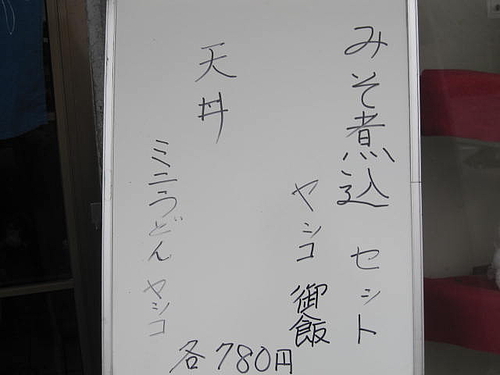 みそ煮込 セット
ヤシコ 御飯
天丼
ミニうどん ヤシコ
各780円